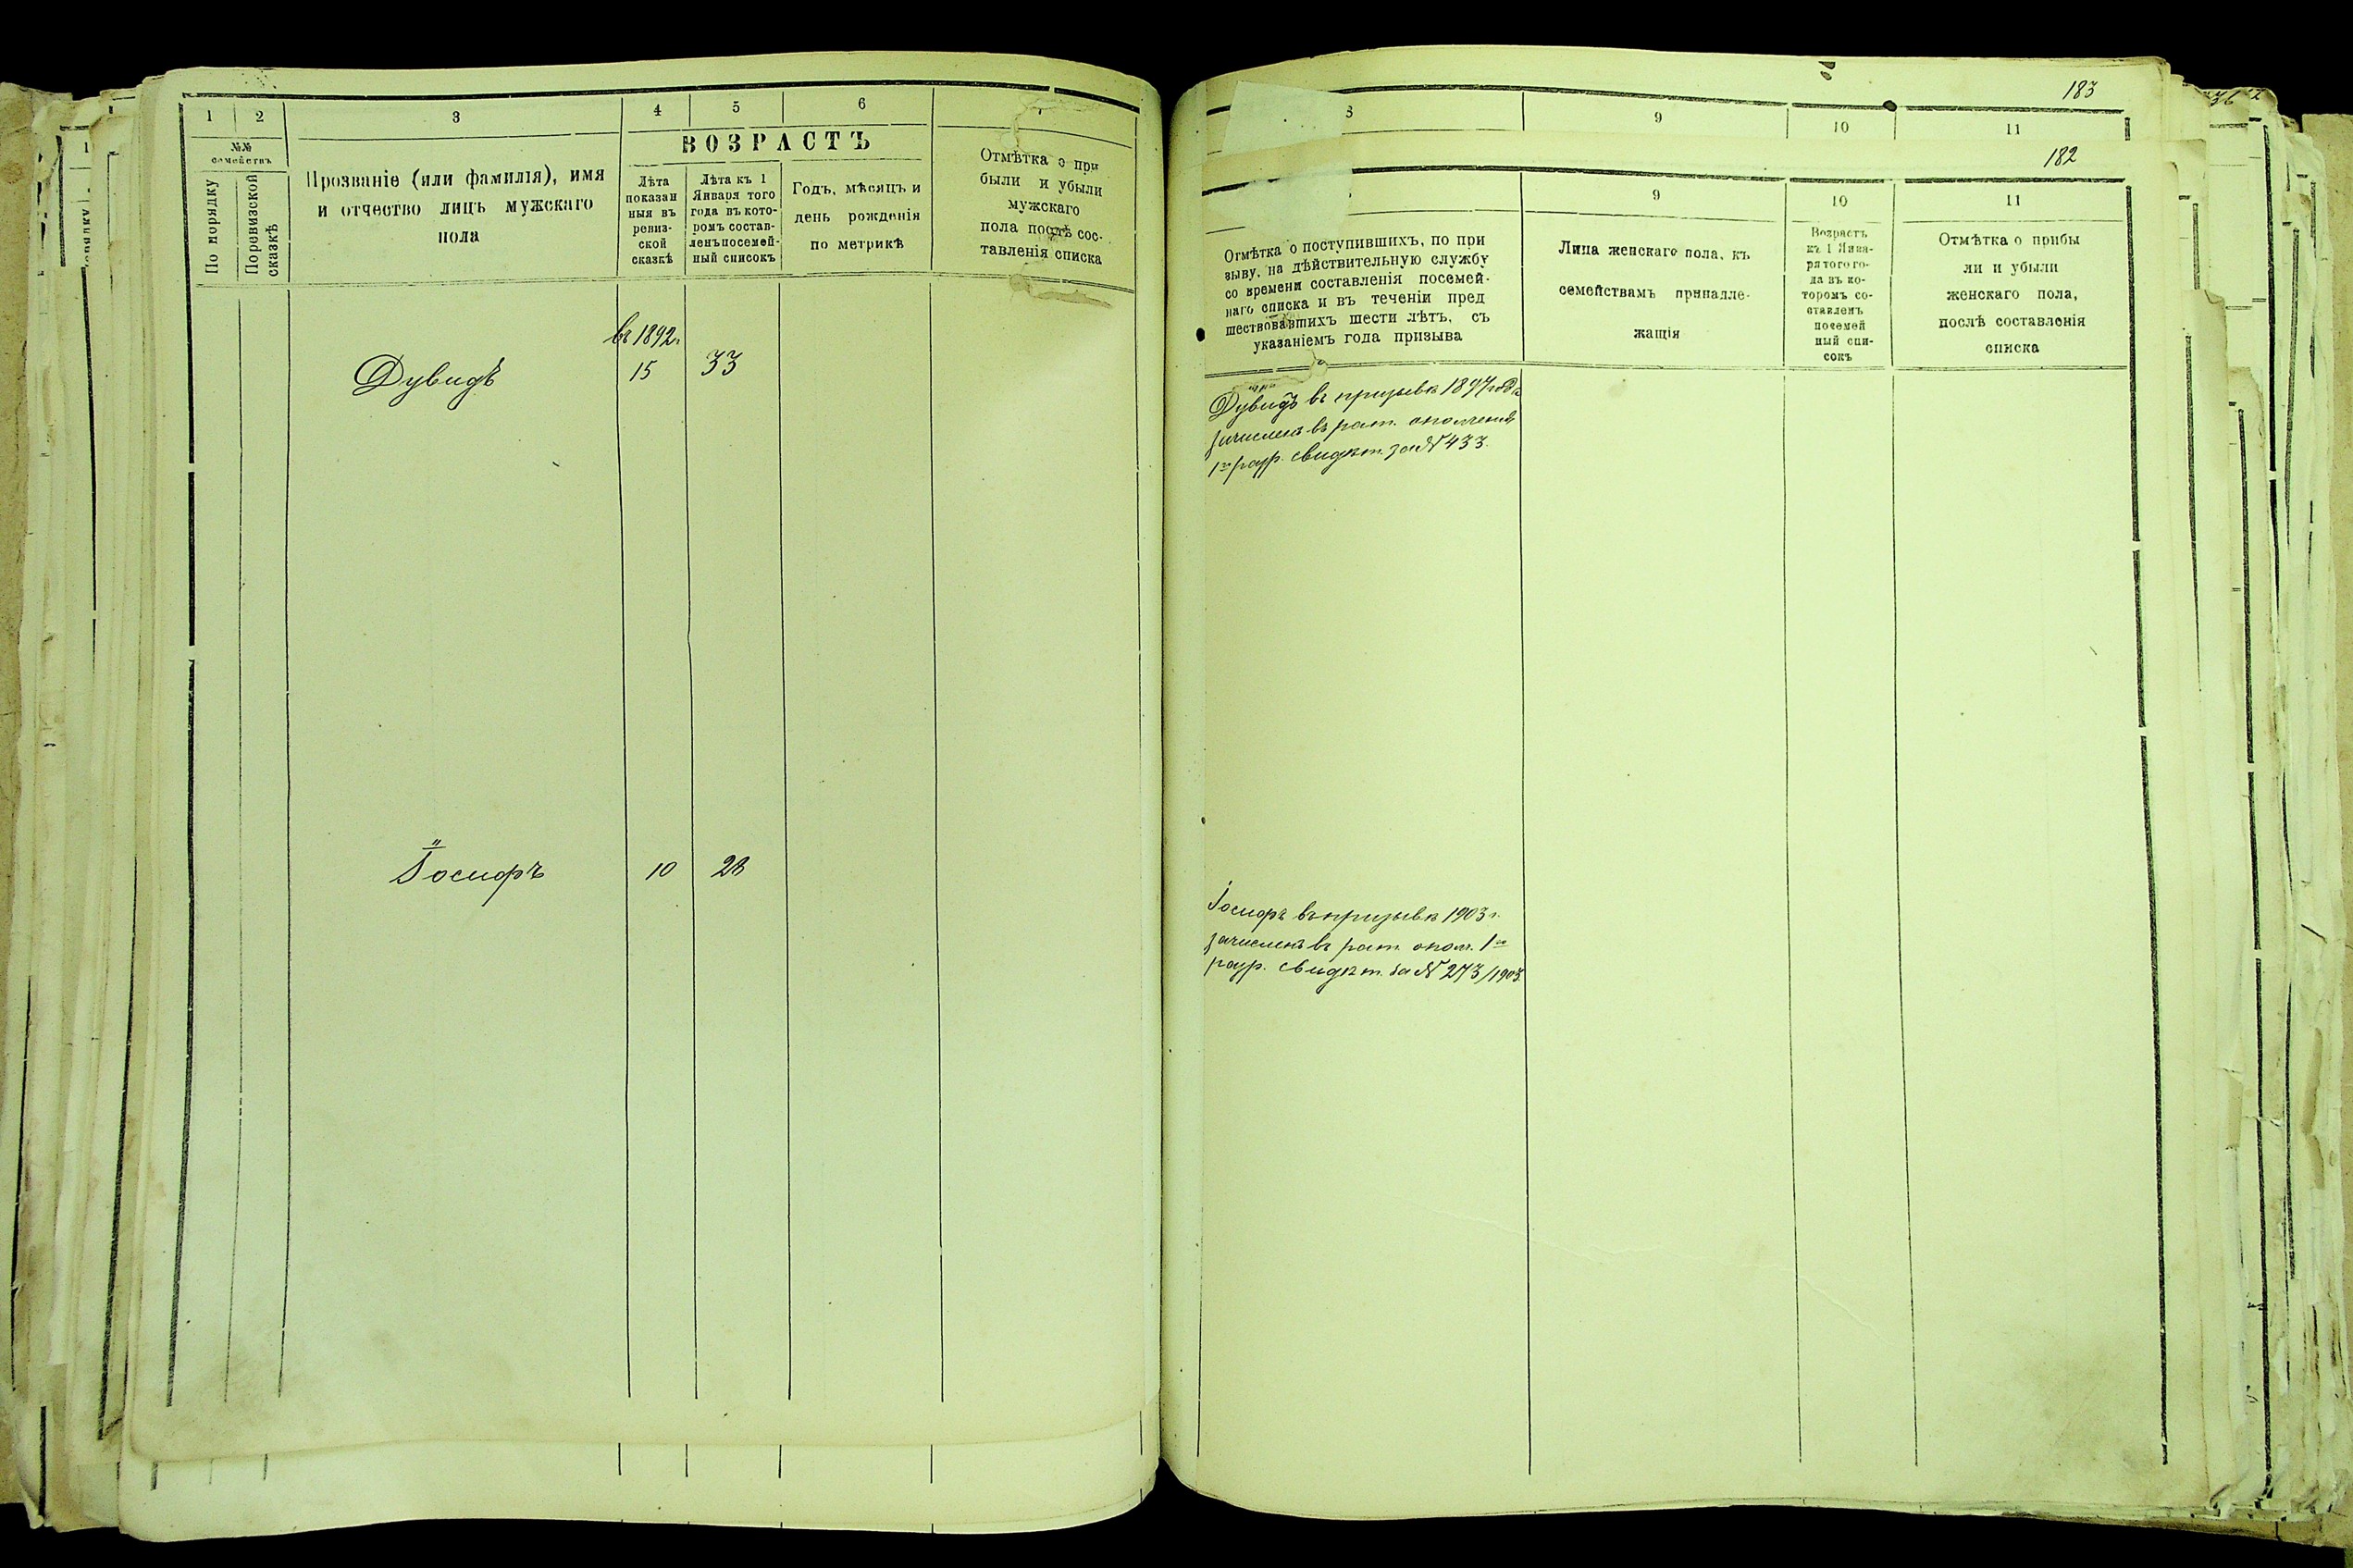 1
2
3
4
5
6
№№
семействъ
По порядку
По ревизской
сказкѣ
Прозваніе (или фамилія), имя
и отчество лицъ мужскаго
пола
ВОЗРАСТЪ
Лѣта
показан
ныя въ
ревиз-
ской
сказкѣ
Лѣта къ 1
Января того
года въ кото-
ромъ состав-
ленъ посемей-
ный списокъ
Годъ, мѣсяцъ и
день рожденія
по метрикѣ
Отмѣтка о при
были и убыли
мужскаго
пола послѣ сос-
тавленія списка
въ 1892 г.
Дувидъ 15 33
Іосифъ 10 28
183
8
9
10
11
182
9
10
11
Отмѣтка о поступившихъ, по при
зыву, на дѣйствительную службу
со времени составленія посемей-
наго списка и въ теченіи пред
шествовавшихъ шести лѣтъ, съ
указаніемъ года призыва
Лица женскаго пола, къ
семействамъ принадле-
жащія
Возрастъ
къ 1 Янва-
ря того го-
да въ ко-
торомъ со-
ставленъ
посемей
ный спи-
сокъ
Отмѣтка о прибы
ли и убыли
женскаго пола,
послѣ составленія
списка
Дувидъ въ призывъ 1897 года
зачисленъ въ рат. ополченія
1го разр. свидѣт. за № 433.
Іосифъ въ призывъ 1903 г.
зачисленъ въ рат. ополч. 1го
разр. свидѣт. за № 273/1903.